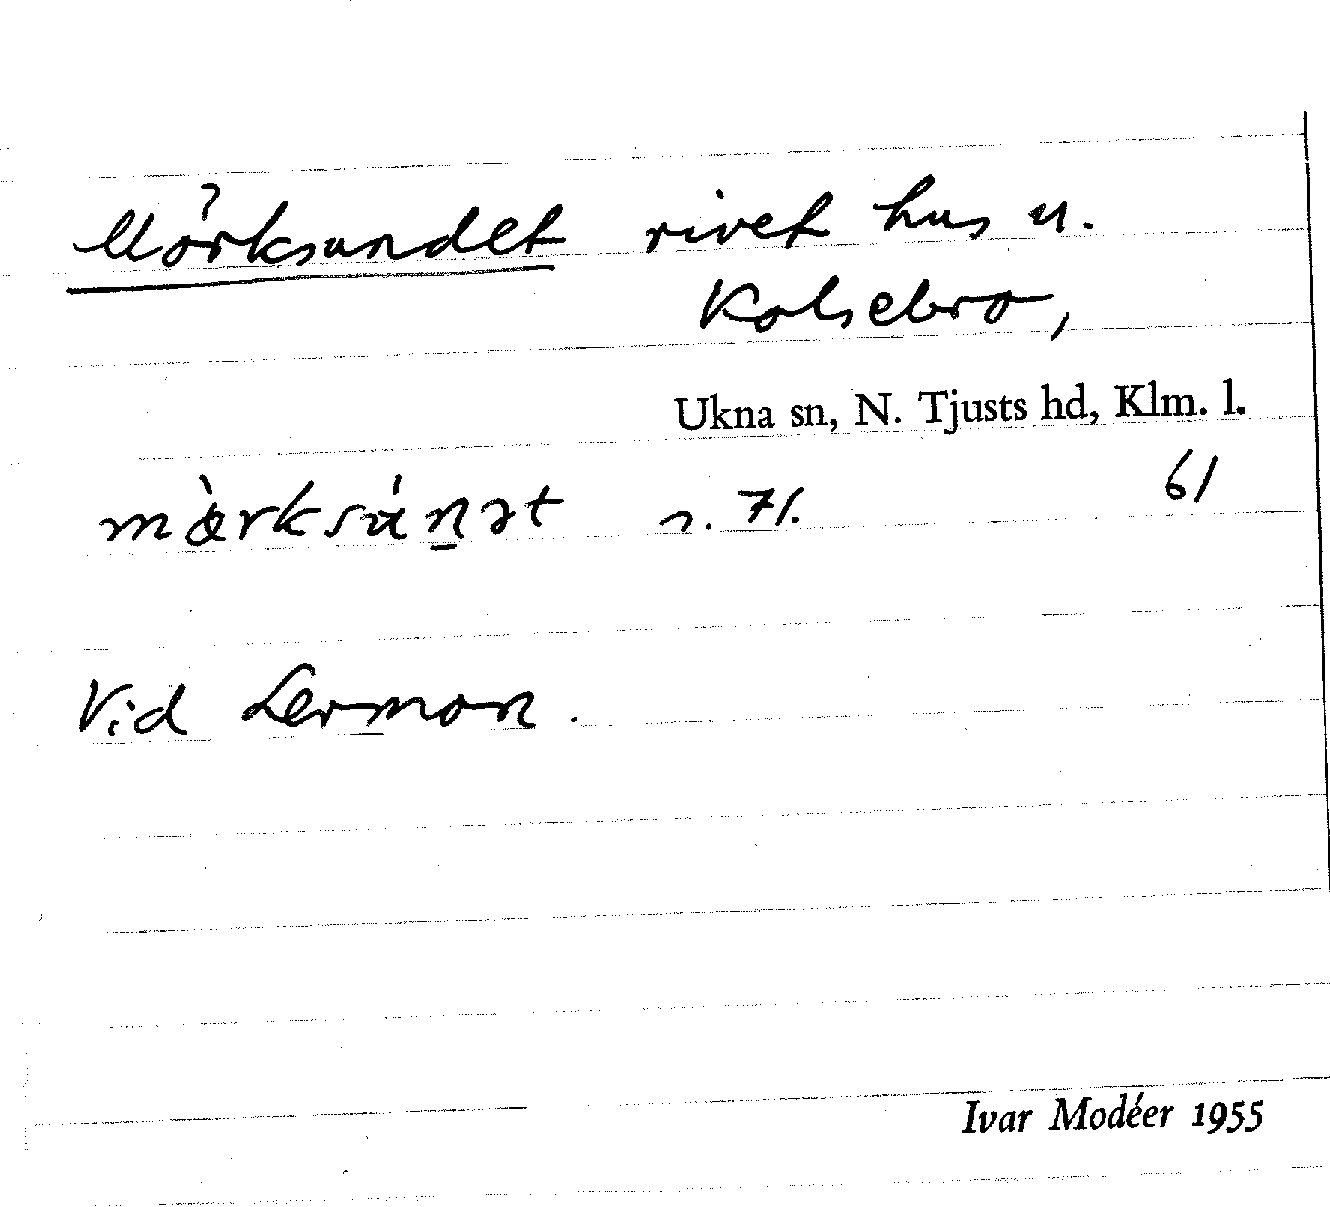 Mörksundet rivet hus u.
Kolsebro,
Ukna sn, N. Tjusts hd, Klm. l.
61
n. 71.
Vid Lermon.
Ivar Modéer 1955